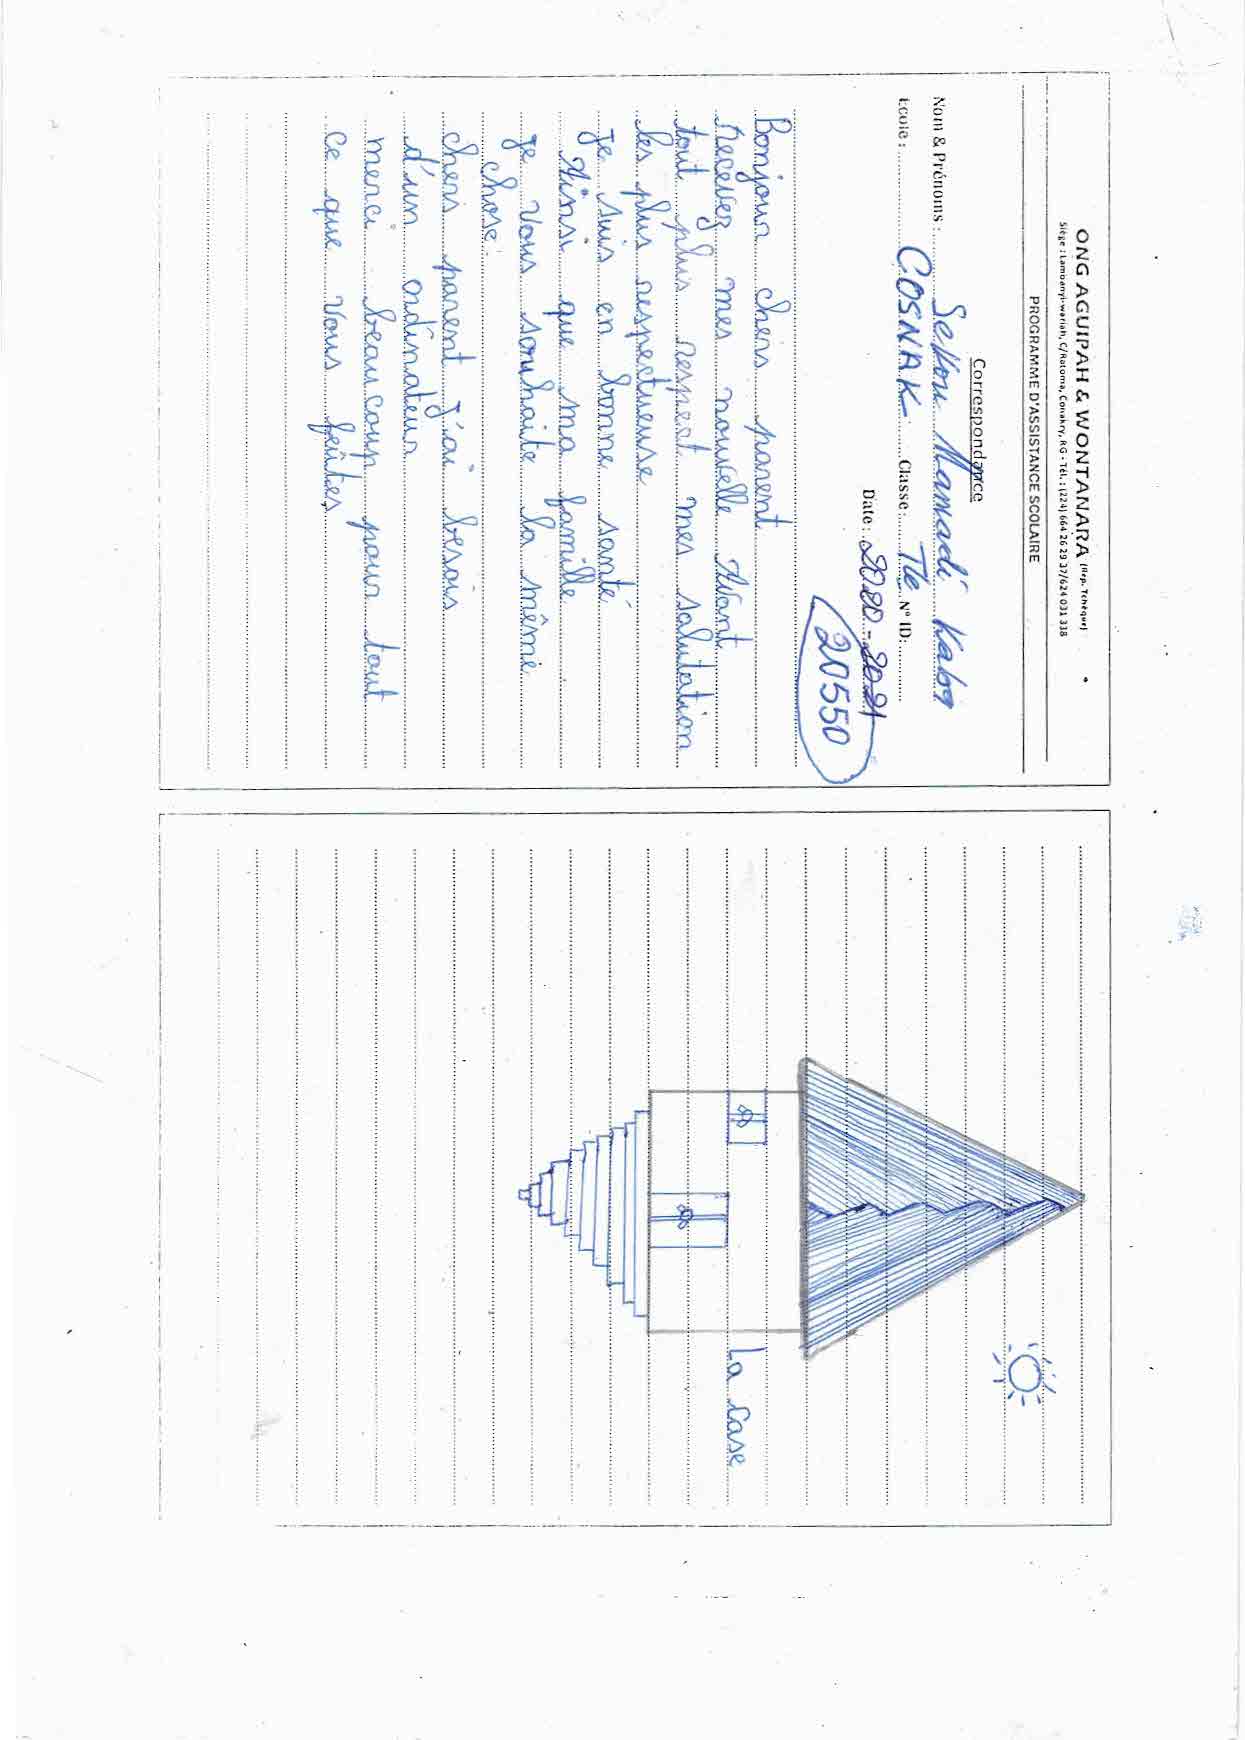 ONG AGUIPAH & WONTANARA (Rep. Tchèque)
Siège : Lamoanyi-wariah, C/Ratoma, Conakry, RG - Tél. : (224) 664 26 29 37/624 031 338
PROGRAMME D'ASSISTANCE SCOLAIRE
Correspondance
Nom & Prénoms : Sekou Mamadi Kaba
Ecole : COSNAK Classe : Tle N° ID:
Date : 2020-2021
20550
Bonjour chers parent
Recevez mes nouvelle Avant
tout plus respect mes salutation
les plus respectueuse
Je suis en bonne santé
Ainsi que ma famille
Je vous souhaite la même
chose.
chers parent j'ai besois
d'un ordinateur
merci beaucoup pour tout
ce que vous feûtes
La case